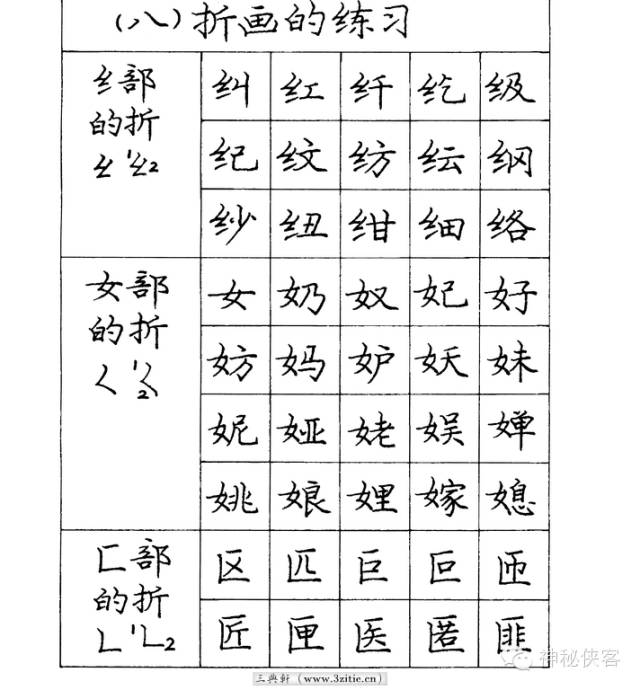 （八）折画的练习
纟部的折
纠 红 纤 纥 级
纪 纹 纺 纭 纲
纱 纽 绀 细 络
女部的折
女 奶 奴 妃 好
妨 妈 妒 妖 妹
妮 娅 姥 娱 婵
姚 娘 娌 嫁 媳
匚部的折
区 匹 巨 叵 匝
匠 匣 医 匿 匪
三典轩 (www.3zitie.cn)
神秘侠客